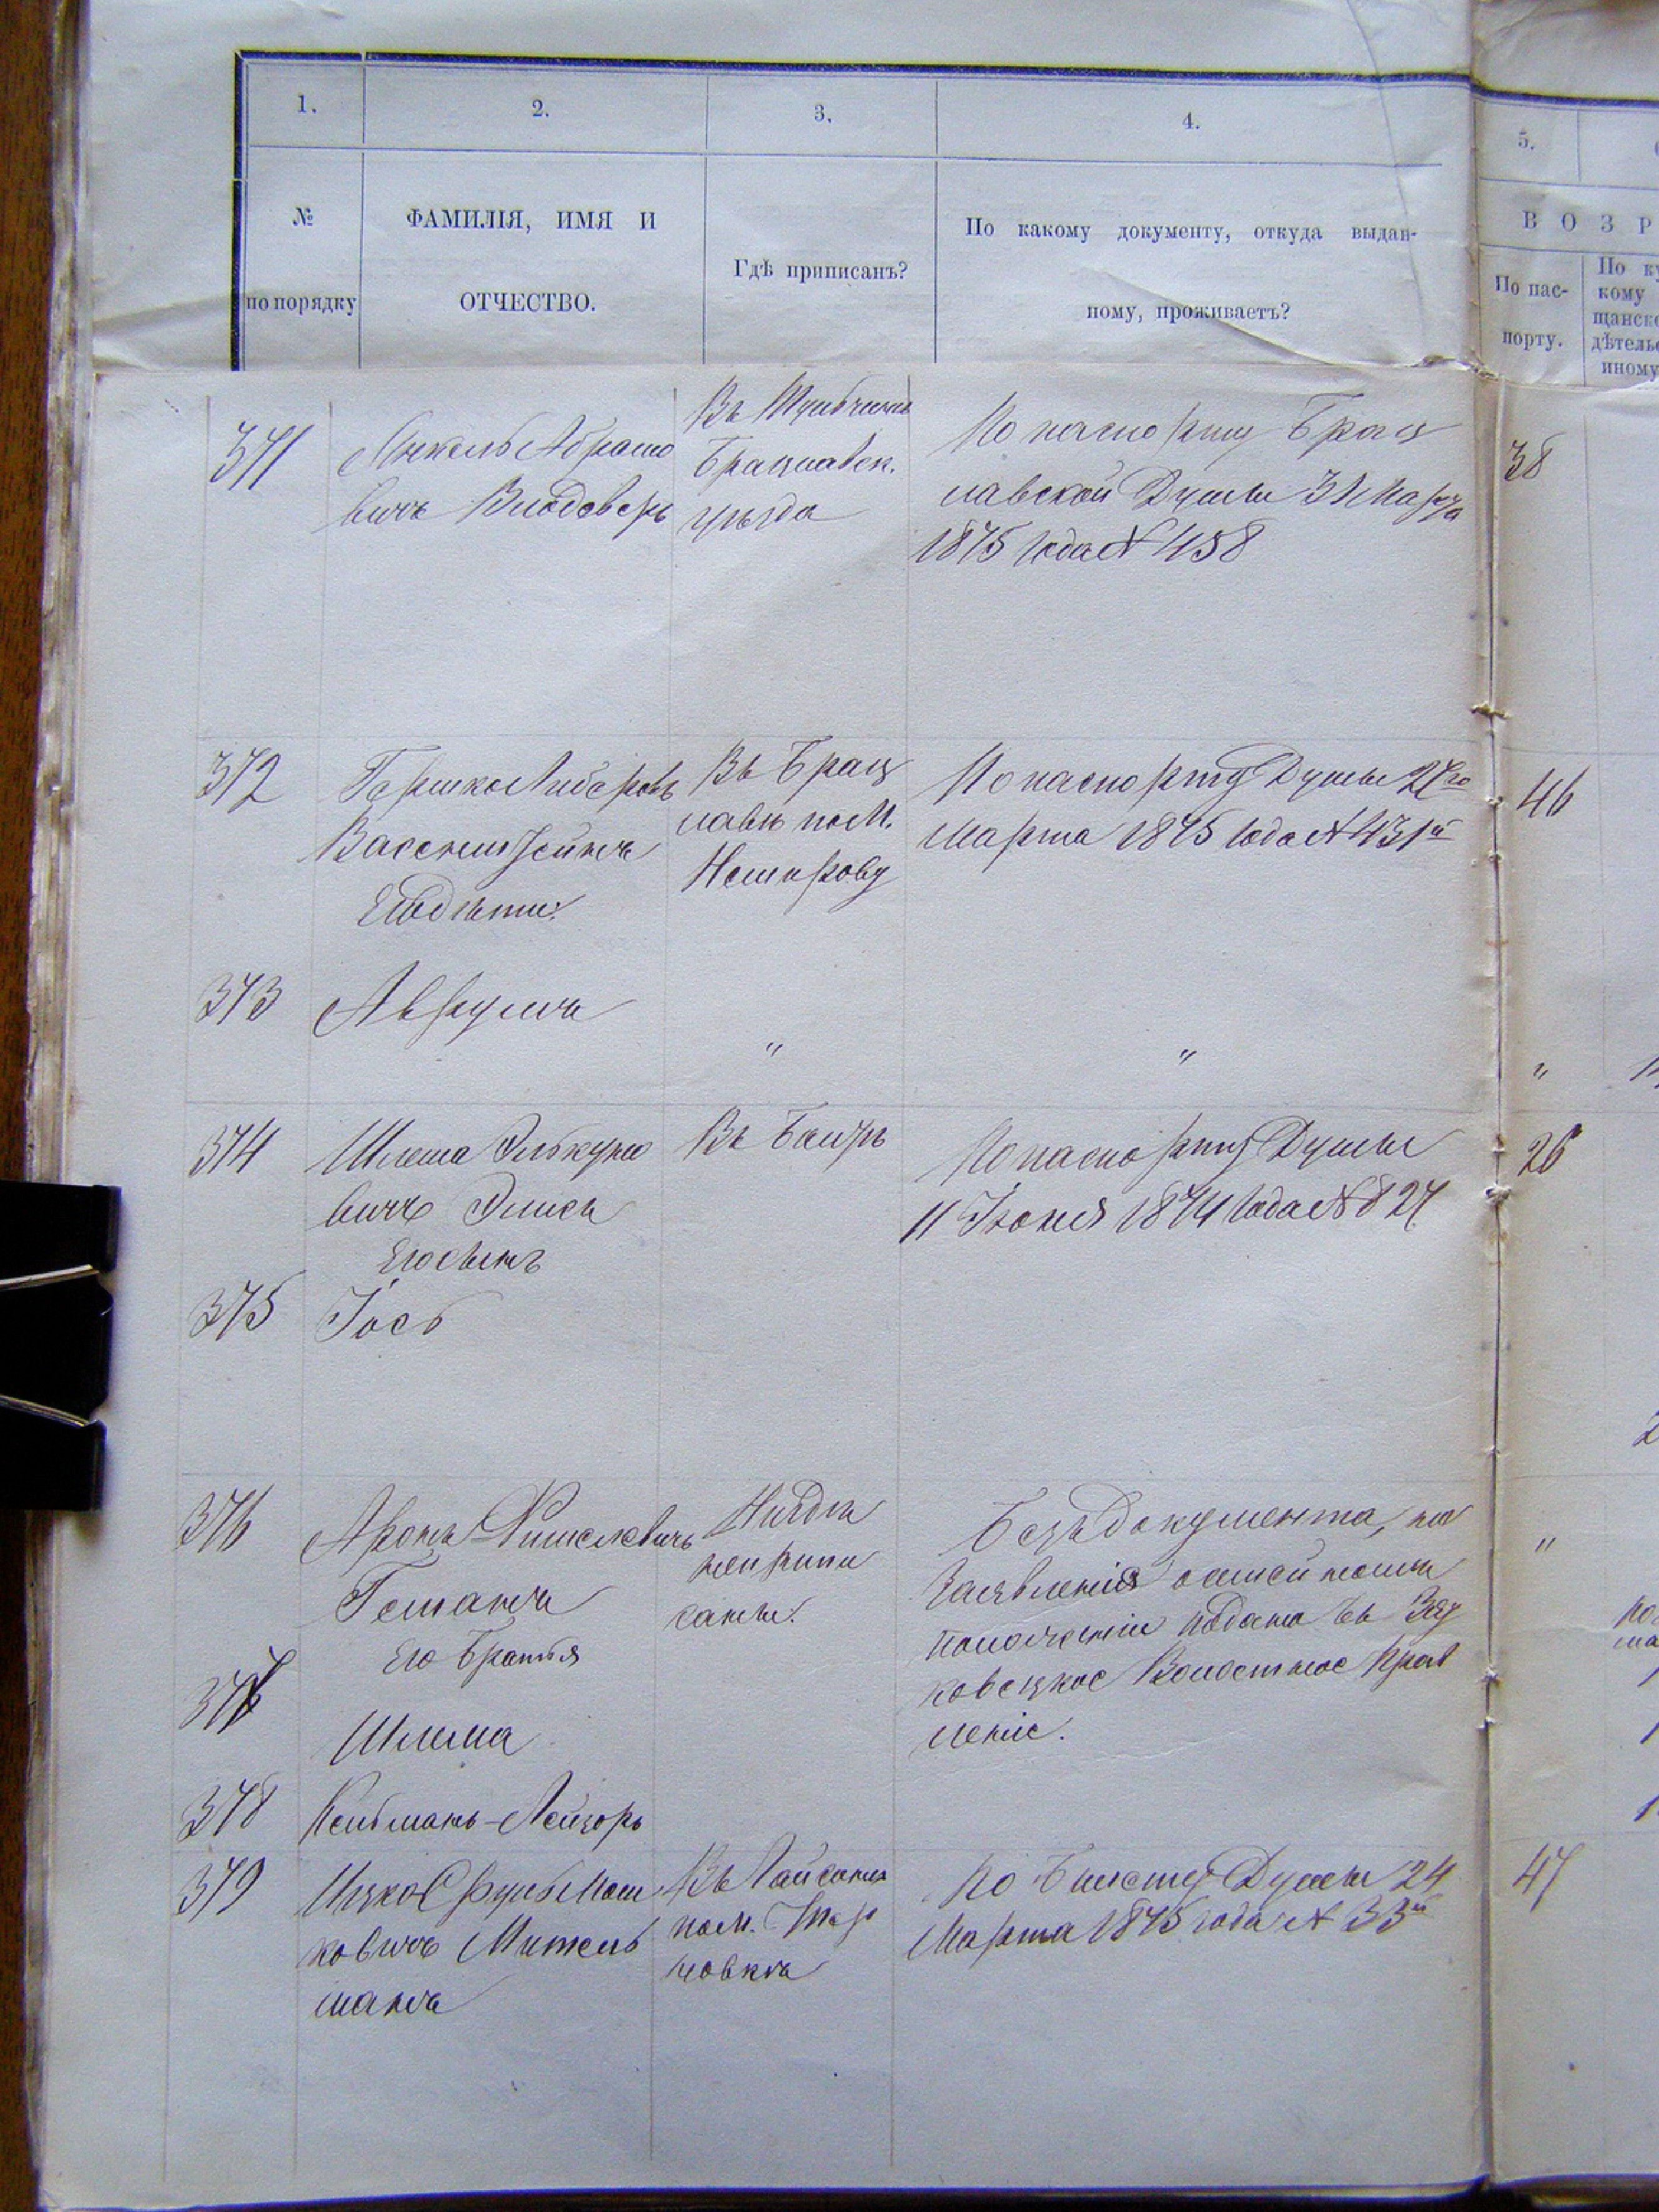 1. 2. 3. 4. 5.
№
по порядку
ФАМИЛІЯ, ИМЯ И
ОТЧЕСТВО.
Гдѣ приписанъ?
По какому документу, откуда выдан-
ному, проживаетъ?
ВОЗР
По пас-
порту.
По к
кому
щанск
дѣтель
иному
371
Янкель Абрамо
вичъ
Въ
Брацлавск.
уѣзда
По паспорту Брац
лавской Думы 31 Марта
1875 года № 458
38
372
Гершко Либеровъ
Васенштейнъ
Его дѣти:
Въ Брац
лавѣ по м.
Немирову
По паспорту Думы 27го
Марта 1875 года № 431й
46
373
Аврумъ
"
"
"
374
Шлема Элькуно
вичъ Эписъ
Его сынъ
Въ Баирѣ
По паспорту Думы
11 Іюня 1874 года № 827.
26
375
Іось
376
Аронъ Фишелевичъ
Гетманъ
Его братья
Нигдѣ
неприпи
саны.
Безъ документа, но
заявленія о семейномъ
положеніи подано въ
ковецкое Волостное Прав
леніе.
"
377
Шлема
378
Кельманъ-Лейзоръ
379
Ицко Сруль Мош
ковичъ Митель
манъ
Въ Гайсинѣ
по м. Тер
новкѣ
По билету Думы 24
Марта 1875 года № 33й
47